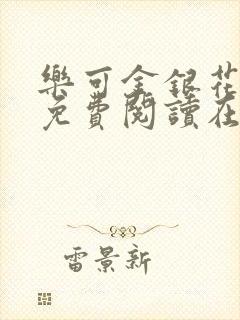 樂可金銀花
免費閱讀在
雷景新